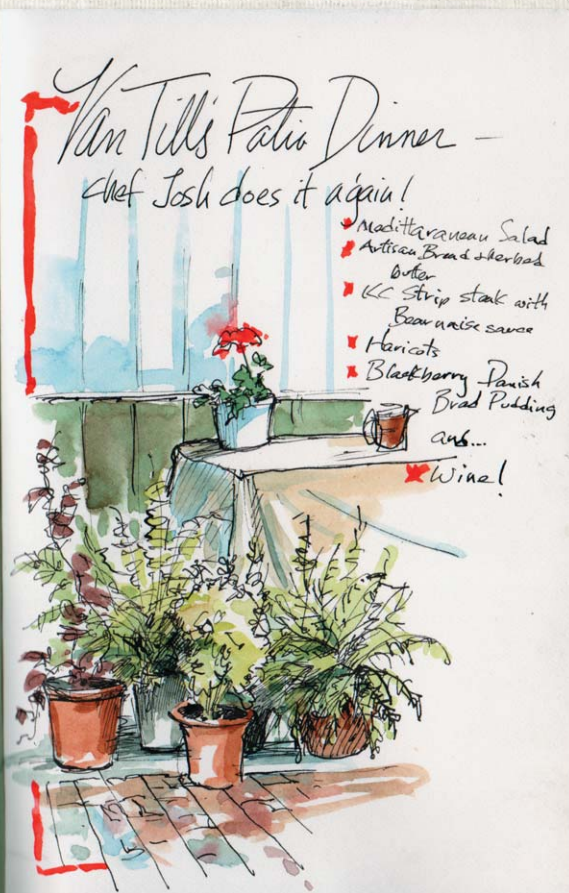 Van Till's Patio Dinner -
chef Josh does it again!
Medittaranean Salad
Artisan Bread & herbed
butter
KC Strip steak with
Bearnaise sauce
Haricots
Blackberry Danish
Bread Pudding
and...
Wine!